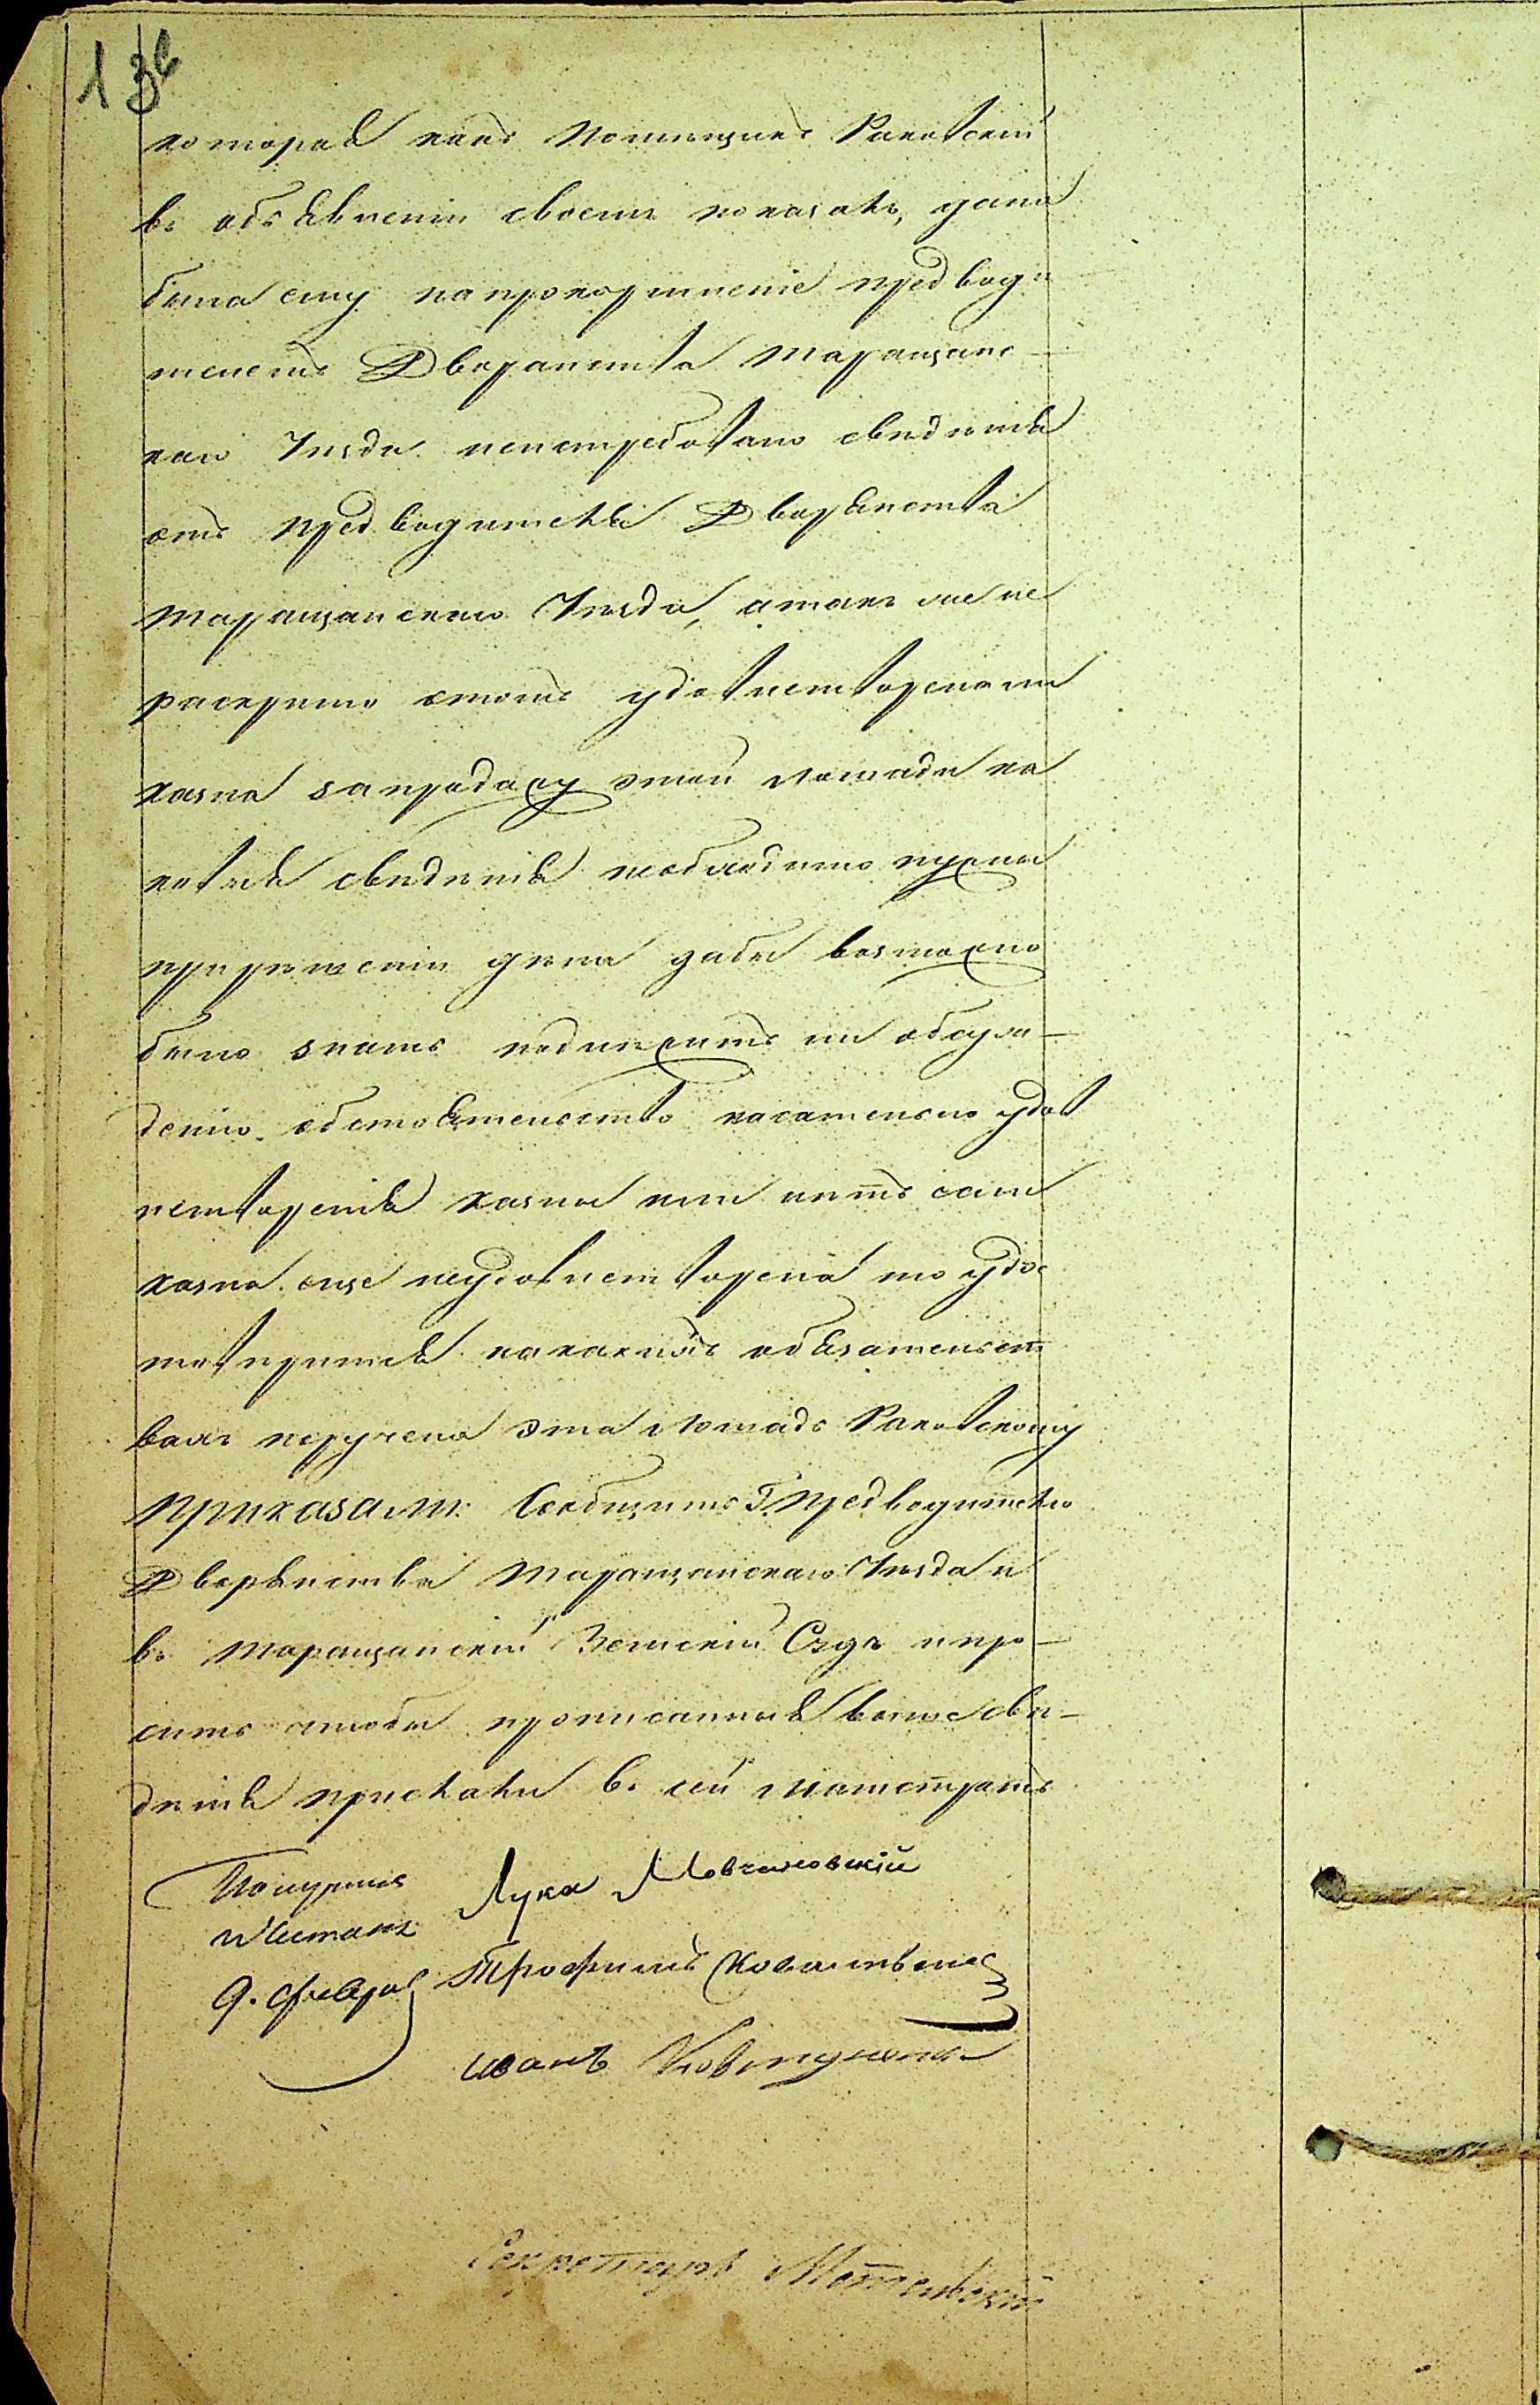 13
которая какъ Помещикъ Раковскій
въ объявленіи своемъ показалъ, дана
была ему напрокормленіе предводи
телемъ Дворянства Таращанс-
каго Уезда неистребовано сведенія
отъ предводителя Дворянства
Таращанскаго Уезда, атакъ же не
раскрыто отомъ удовлетворенали
казна запродажу этой лошади ка
ковыя сведенія необходимо нужны
прирешеніи дела дабы возможно
было знать надлежитъ ли обсуж-
денію обстоятельство касательно удов
летворенія казны или нетъ если
казна еще неудовлетворена то удос
товерится накакихъ обязательст
вахъ поручена эта лошадь Раковскому
Приказали: Сообщить Г. Предводителю
Дворянства Таращанскаго Уезда и
въ Таращанскій Земскій Судъ ипро-
сить чтобы прописанныя выше све-
денія прислали въ сей Магистратъ
Лука Мовчановскій
9. Февра Трофимъ
иванъ
Секретарь